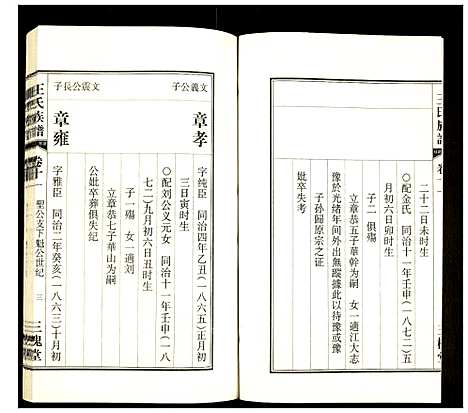 二十二日未时生
○配金氏 同治十一年壬申(一八七二)五
月初六日卯时生
子二俱殤
立章恭五子華幹为嗣 女一適江大志
豫於光绪年间外出無蹤據此以待豫或豫
子孙歸原宗之证
妣卒失考
文義公子
章孝
字纯臣 同治四年乙丑(一八六五)正月初
三日寅时生
○配刘公义元女 同治十一年壬申(一八
七二)九月初六日丑时生
立章恭七子華山为嗣 女一適刘
公妣卒葬俱失纪
文震公長子
章雍
字雅臣 同治二年癸亥(一八六三)十月初
王氏族譜 卷十 聖公支下魁公世纪 三 三槐堂